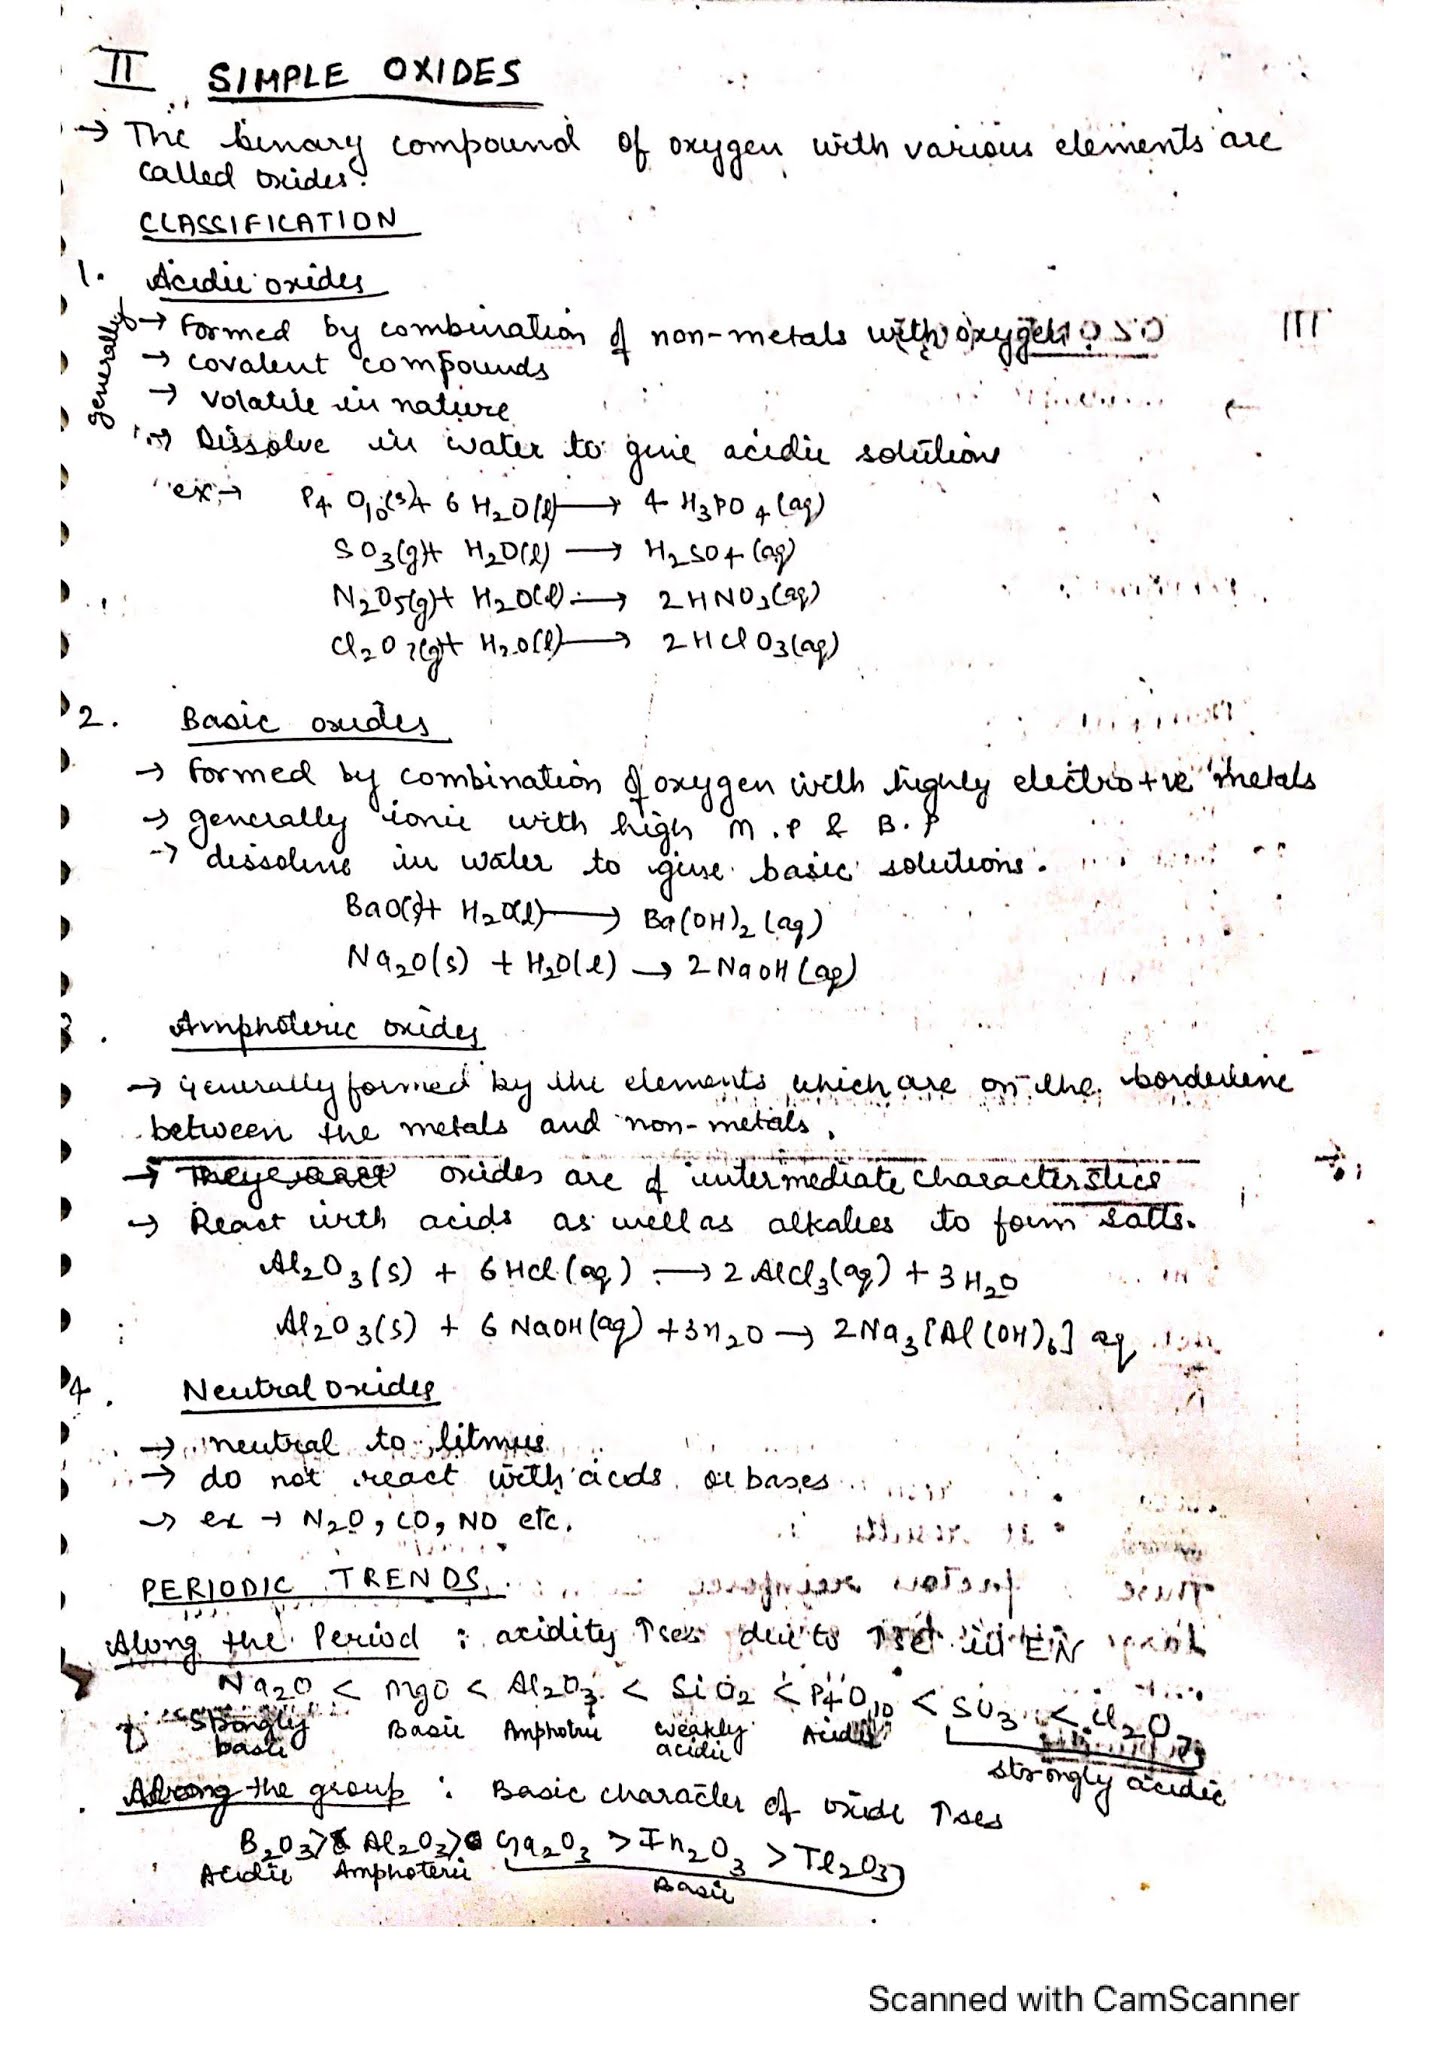 II SIMPLE OXIDES
→ The binary compound of oxygen with various elements are
called oxides.
CLASSIFICATION
1. Acidic oxides
generally
→ Formed by combination of non-metals with oxygen
→ covalent compounds
→ volatile in nature
→ Dissolve in water to give acidic solutions
ex → P4O10(s) + 6 H2O(l) → 4 H3PO4(aq)
SO3(g) + H2O(l) → H2SO4(aq)
N2O5(g) + H2O(l) → 2HNO3(aq)
Cl2O7(g) + H2O(l) → 2HClO3(aq)
2. Basic oxides
→ Formed by combination of oxygen with highly electro+ve metals
→ generally ionic with high M.P & B.P
→ dissolve in water to give basic solutions.
BaO(s) + H2O(l) → Ba(OH)2(aq)
Na2O(s) + H2O(l) → 2NaOH(aq)
3. Amphoteric oxides
→ Generally formed by the elements which are on the borderline
between the metals and non-metals.
→ oxides are of intermediate characterstics
→ React with acids as well as alkalies to form salts.
Al2O3(s) + 6HCl(aq) → 2AlCl3(aq) + 3H2O
Al2O3(s) + 6NaOH(aq) + 3H2O → 2Na3[Al(OH)6] aq
4. Neutral oxides
→ neutral to litmus
→ do not react with acids or bases
→ ex → N2O, CO, NO etc.
PERIODIC TRENDS
Along the Period : acidity ↑ses due to ↑se in EN
Na2O < MgO < Al2O3 < SiO2 < P4O10 < SO3 < Cl2O7
Strongly basic Basic Amphoteric weakly acidic Acidic strongly acidic
Along the group : Basic character of oxide ↑ses
B2O3 > Al2O3 > Ga2O3 > In2O3 > Tl2O3
Acidic Amphoteric Basic
Scanned with CamScanner